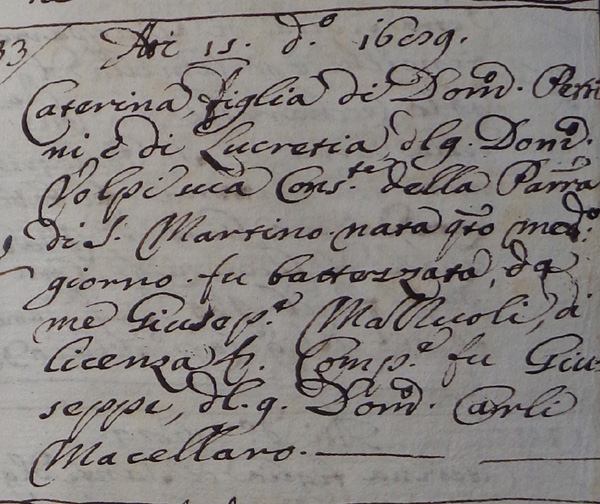 33 Adi 11. d.º 1659.
Caterina, figlia di Dom.º Petri
ni e di Lucretia, dl q. Dom.º
Volpi sua Cons.te della Parr.a
di S. Martino. nata q.to med.º
giorno. fu battezzata, da
me Giusep.e Mattucoli, di
licenza &. Comp.e fu Giu
seppe, dl. q. Dom.º Carli
Macellaro.